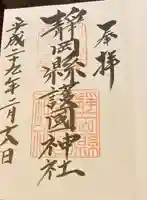 奉拝
静岡縣護國神社
平成二十九年二月十六日